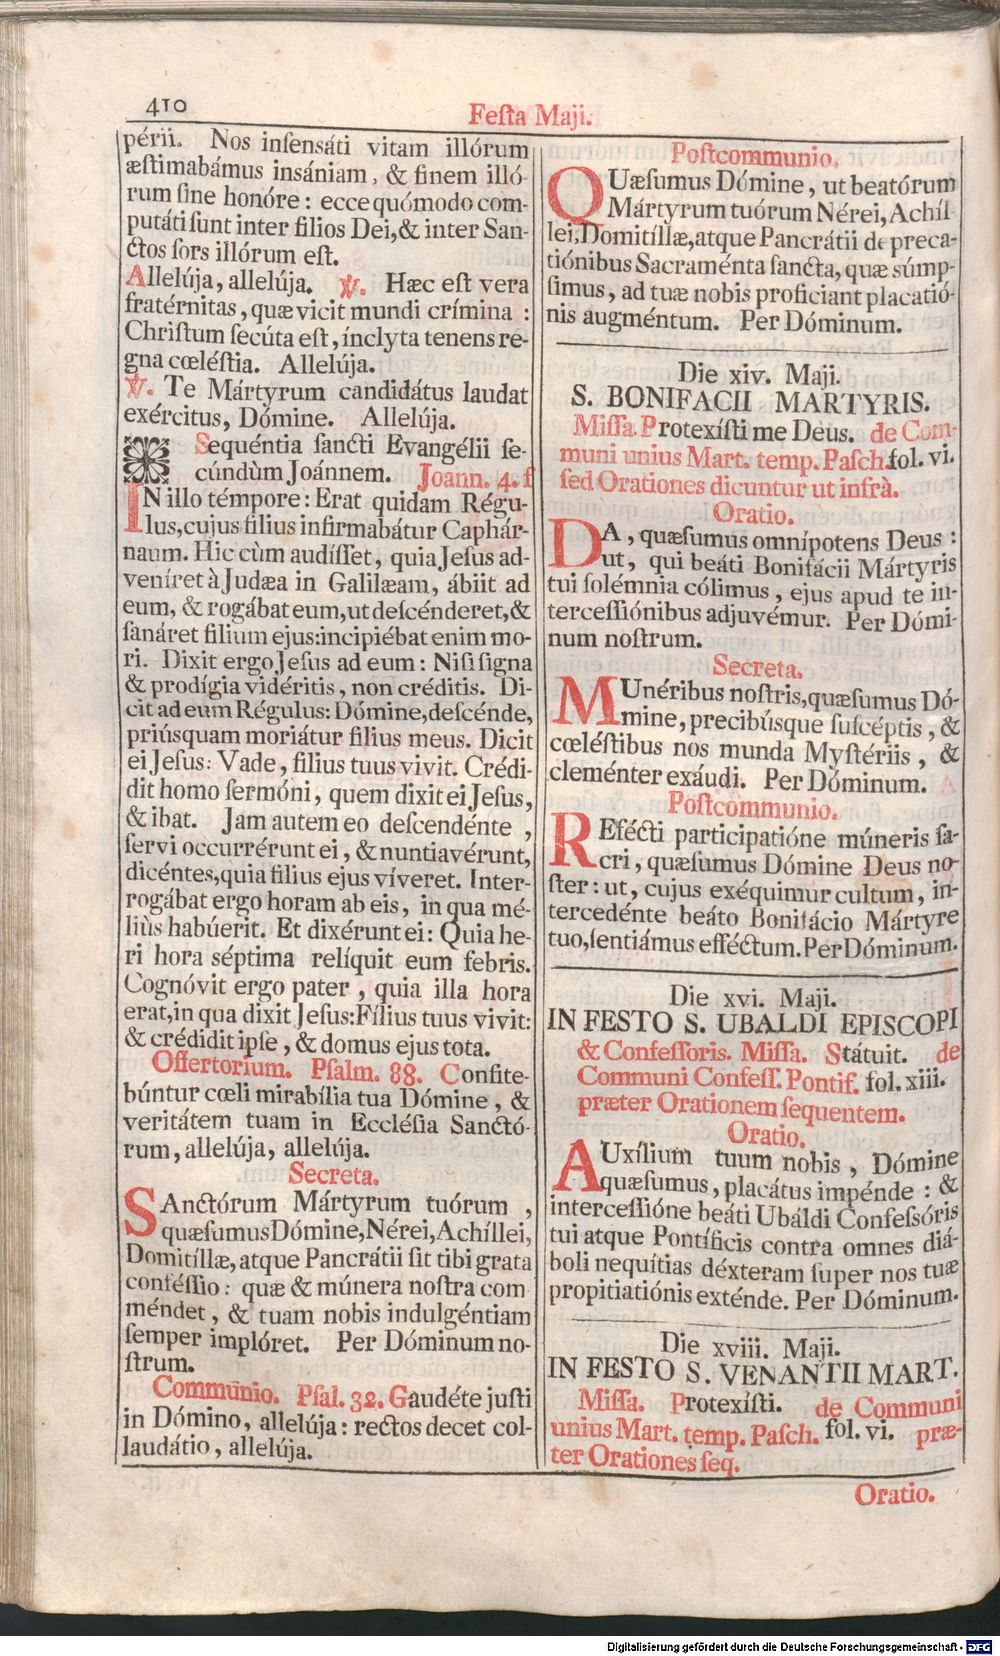 410
Feſta Maji.
périi. Nos inſenſáti vitam illórum
æſtimabámus insániam, & finem illó-
rum ſine honóre : ecce quómodo com-
putáti ſunt inter filios Dei,& inter San-
ctos ſors illórum eſt.
Allelúja, allelúja. ℣. Hæc eſt vera
fratérnitas, quæ vicit mundi crímina :
Chriſtum ſecúta eſt, ínclyta tenens re-
gna cœléſtia. Allelúja.
℣. Te Mártyrum candidátus laudat
exércitus, Dómine. Allelúja.
Sequéntia ſancti Evangélii ſe-
cúndùm Joánnem. Joann. 4. f
IN illo témpore : Erat quidam Régu-
lus, cujus filius infirmabátur Caphár-
naum. Hic cùm audíſſet, quia Jeſus ad-
veníret à Judæa in Galilæam, ábiit ad
eum, & rogábat eum, ut deſcénderet, &
ſanáret filium ejus: incipiébat enim mo-
ri. Dixit ergo Jeſus ad eum : Niſi ſigna
& prodígia vidéritis, non créditis. Di-
cit ad eum Régulus: Dómine, deſcénde,
priúsquam moriátur filius meus. Dicit
ei Jeſus: Vade, filius tuus vivit. Crédi-
dit homo ſermóni, quem dixit ei Jeſus,
& ibat. Jam autem eo deſcendénte ,
ſervi occurrérunt ei, & nuntiavérunt,
dicéntes, quia filius ejus víveret. Inter-
rogábat ergo horam ab eis, in qua mé-
liùs habúerit. Et dixérunt ei : Quia he-
ri hora séptima relíquit eum febris.
Cognóvit ergo pater , quia illa hora
erat, in qua dixit Jeſus: Fílius tuus vivit:
& crédidit ipſe, & domus ejus tota.
Offertorium. Pſalm. 88. Confite-
búntur cœli mirabília tua Dómine , &
veritátem tuam in Eccléſia Sanctó-
rum, allelúja, allelúja.
Secreta.
SAnctórum Mártyrum tuórum ,
quæſumus Dómine, Nérei, Achíllei,
Domitíllæ, atque Pancrátii ſit tibi grata
conféſſio : quæ & múnera noſtra com
méndet, & tuam nobis indulgéntiam
ſemper implóret. Per Dóminum no-
ſtrum.
Communio. Pſal. 32. Gaudéte juſti
in Dómino, allelúja : rectos decet col-
laudátio, allelúja.
Poſtcommunio.
QUæſumus Dómine, ut beatórum
Mártyrum tuórum Nérei, Achíl-
lei, Domitíllæ, atque Pancrátii depreca-
tiónibus Sacraménta ſancta, quæ súmp-
ſimus, ad tuæ nobis proficiant placatió-
nis augméntum. Per Dóminum.
Die xiv. Maji.
S. BONIFACII MARTYRIS.
Miſſa. Protexíſti me Deus. de Com-
muni unius Mart. temp. Paſch. fol. vi.
ſed Orationes dicuntur ut infrà.
Oratio.
DA, quæſumus omnípotens Deus :
ut, qui beáti Bonifácii Mártyris
tui ſolémnia cólimus, ejus apud te in-
terceſſiónibus adjuvémur. Per Dómi-
num noſtrum.
Secreta.
MUnéribus noſtris, quæſumus Dó-
mine, precibúsque ſuſcéptis, &
cœléſtibus nos munda Myſtériis , &
cleménter exáudi. Per Dóminum.
Poſtcommunio.
REfécti participatióne múneris ſa-
cri, quæſumus Dómine Deus no-
ſter : ut, cujus exéquimur cultum, in-
tercedénte beáto Bonifácio Mártyre
tuo, ſentiámus efféctum. Per Dóminum.
Die xvi. Maji.
IN FESTO S. UBALDI EPISCOPI
& Confeſſoris. Miſſa. Státuit. de
Communi Confeſſ. Pontif. fol. xiii.
præter Orationem ſequentem.
Oratio.
AUxílium tuum nobis , Dómine
quæſumus, placátus impénde : &
interceſſióne beáti Ubáldi Confeſsóris
tui atque Pontíficis contra omnes diá-
boli nequítias déxteram ſuper nos tuæ
propitiatiónis exténde. Per Dóminum.
Die xviii. Maji.
IN FESTO S. VENANTII MART.
Miſſa. Protexíſti. de Communi
unius Mart. temp. Paſch. fol. vi. præ-
ter Orationes ſeq.
Oratio.
Digitalisierung gefördert durch die Deutsche Forschungsgemeinschaft - DFG